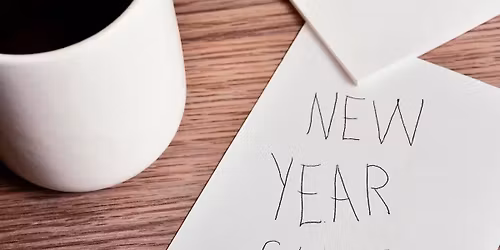 NEW
YEAR